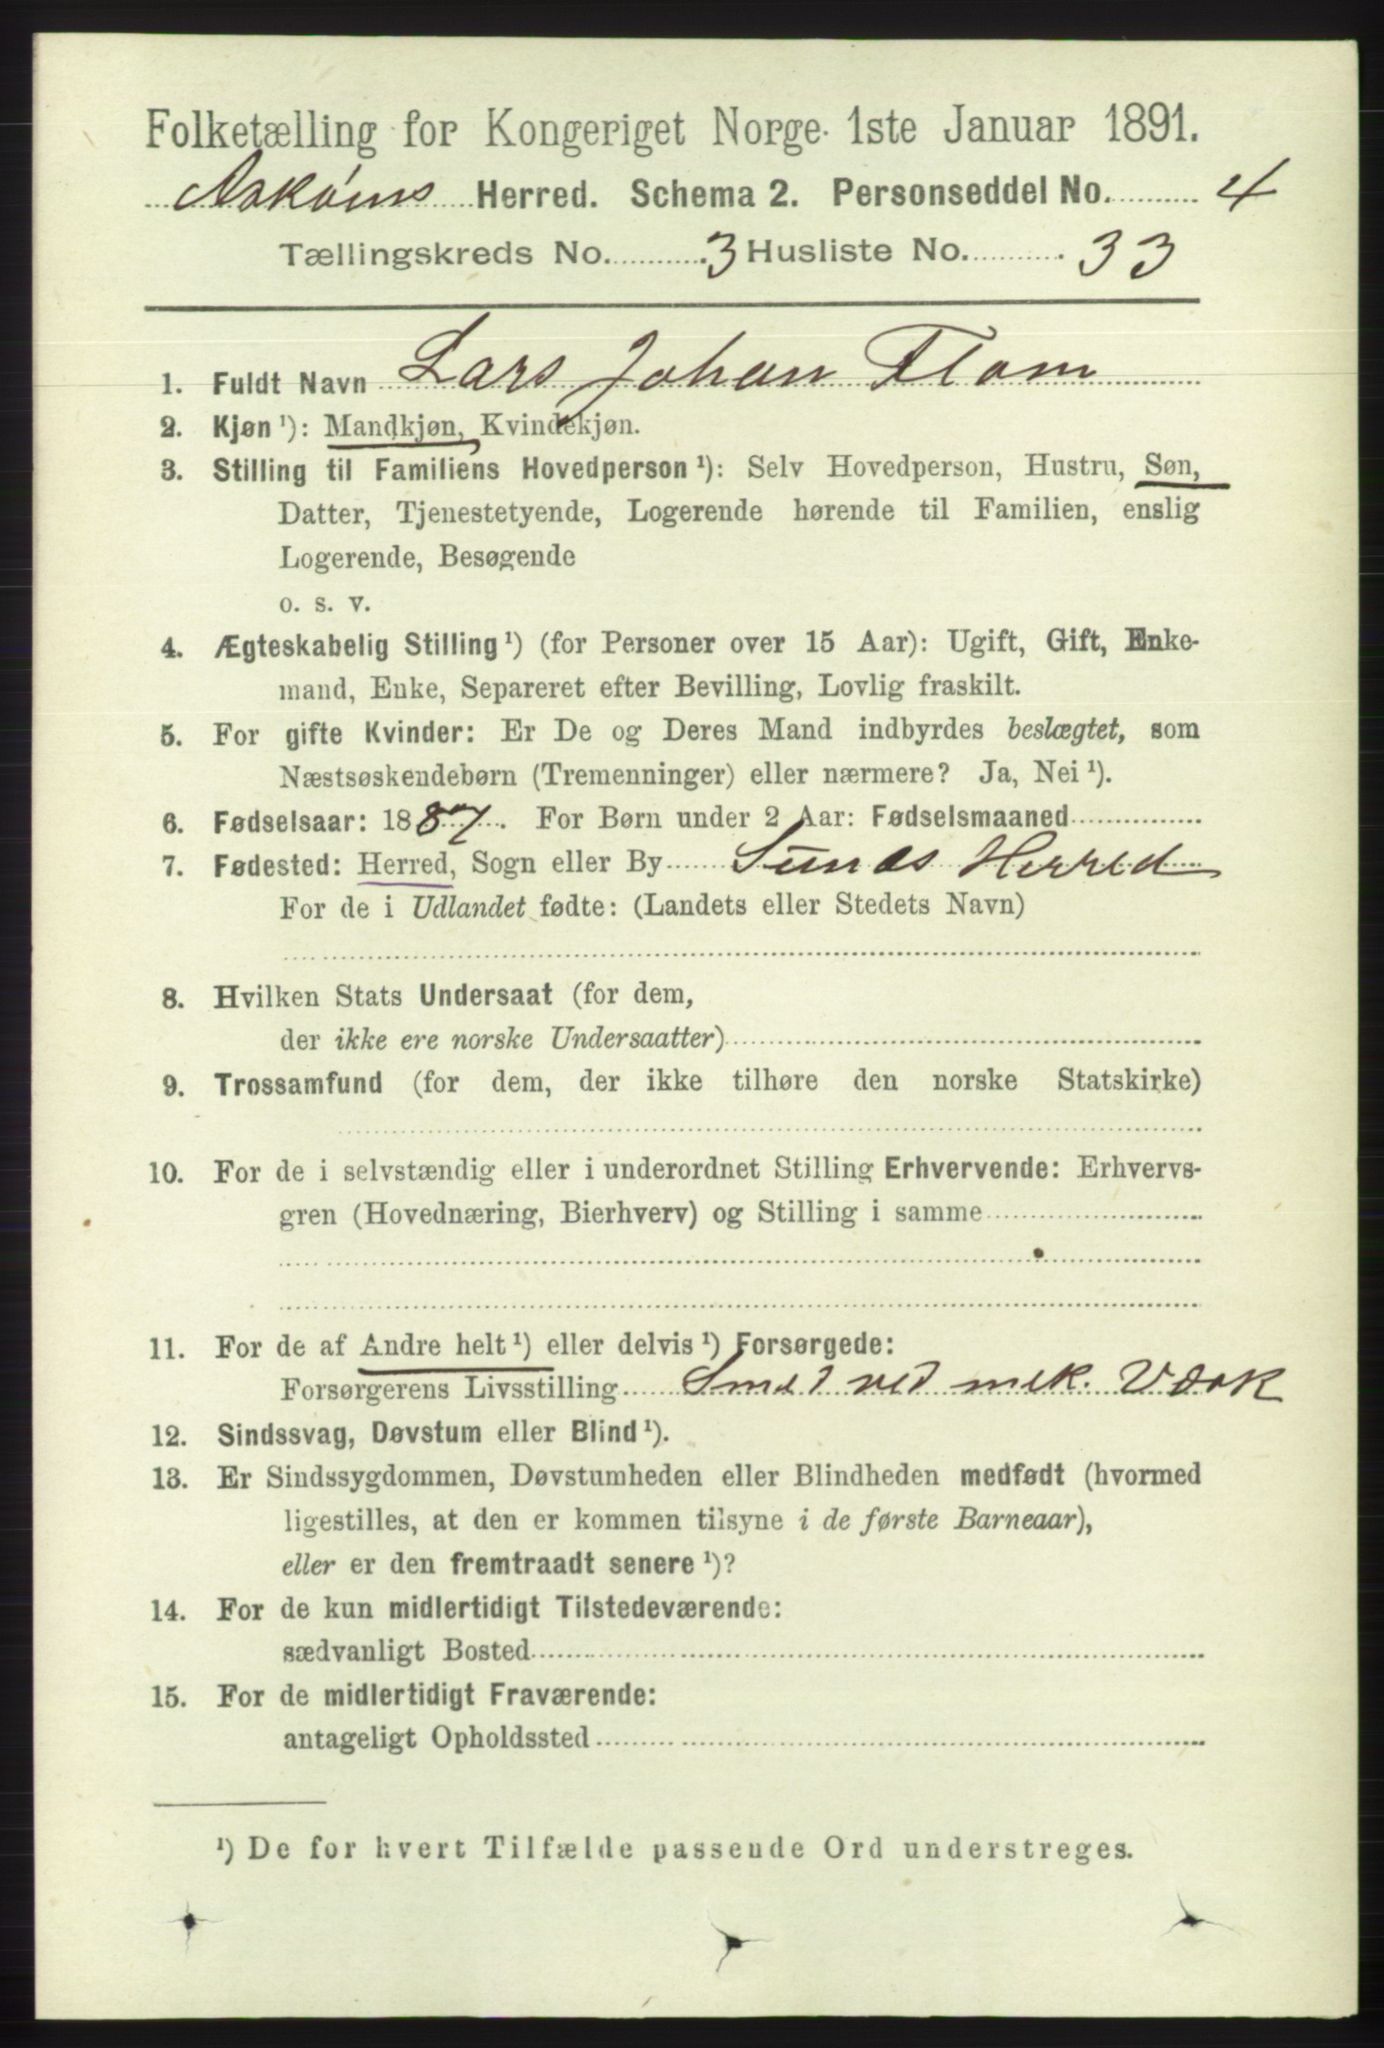 Folketælling for Kongeriget Norge 1ste Januar 1891.
Askøens Herred. Schema 2. Personseddel No. 4
Tællingskreds No. 3 Husliste No. 33
1. Fuldt Navn Lars Johan Flom
2. Kjøn ¹): Mandkjøn, Kvindekjøn.
3. Stilling til Familiens Hovedperson ¹): Selv Hovedperson, Hustru, Søn,
Datter, Tjenestetyende, Logerende hørende til Familien, enslig
Logerende, Besøgende
o. s. v.
4. Ægteskabelig Stilling ¹) (for Personer over 15 Aar): Ugift, Gift, Enke-
mand, Enke, Separeret efter Bevilling, Lovlig fraskilt.
5. For gifte Kvinder: Er De og Deres Mand indbyrdes beslægtet, som
Næstsøskendebørn (Tremenninger) eller nærmere? Ja, Nei ¹).
6. Fødselsaar: 1887. For Børn under 2 Aar: Fødselsmaaned
7. Fødested: Herred, Sogn eller By Sunds Herred
For de i Udlandet fødte: (Landets eller Stedets Navn)
8. Hvilken Stats Undersaat (for dem,
der ikke ere norske Undersaatter)
9. Trossamfund (for dem, der ikke tilhøre den norske Statskirke)
10. For de i selvstændig eller i underordnet Stilling Erhvervende: Erhvervs-
gren (Hovednæring, Bierhverv) og Stilling i samme
11. For de af Andre helt ¹) eller delvis ¹) Forsørgede:
Forsørgerens Livsstilling Smed ved mek. Værk
12. Sindssvag, Døvstum eller Blind ¹).
13. Er Sindssygdommen, Døvstumheden eller Blindheden medfødt (hvormed
ligestilles, at den er kommen tilsyne i de første Barneaar),
eller er den fremtraadt senere ¹)?
14. For de kun midlertidigt Tilstedeværende:
sædvanligt Bosted
15. For de midlertidigt Fraværende:
antageligt Opholdssted
¹) De for hvert Tilfælde passende Ord understreges.